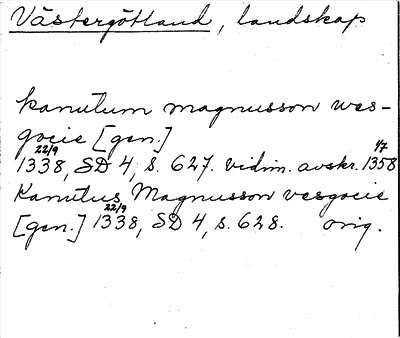 Västergötland, landskap
kanutum magnusson wes-
gocie [gen.]
22/9 1338, SD 4, s. 627. vidim. avskr. 1/7 1358
Kanutus Magnusson vesgocie
[gen.] 22/9 1338, SD 4, s. 628. orig.